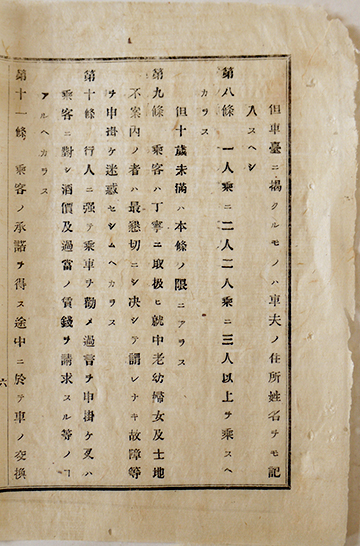 但車臺ニ揭クルモノハ車夫ノ住所姓名ヲモ記
入スヘシ
第八條 一人乘ニ二人二人乘ニ三人以上ヲ乘スヘ
カラス
但十歲未滿ハ本條ノ限ニアラス
第九條 乘客ハ丁寧ニ取扱ヒ就中老幼婦女及土地
不案內ノ者ハ最懇切ニシ决シテ謂レナキ故障等
ヲ申掛ケ迷惑セシムヘカラス
第十條 行人ニ强テ乘車ヲ勸メ過言ヲ申掛ケ又ハ
乘客ニ對シ酒價及過當ノ賃錢ヲ請求スル等ノヿ
アルヘカラス
第十一條 乘客ノ承諾ヲ得ス途中ニ於テ車ノ交換
六